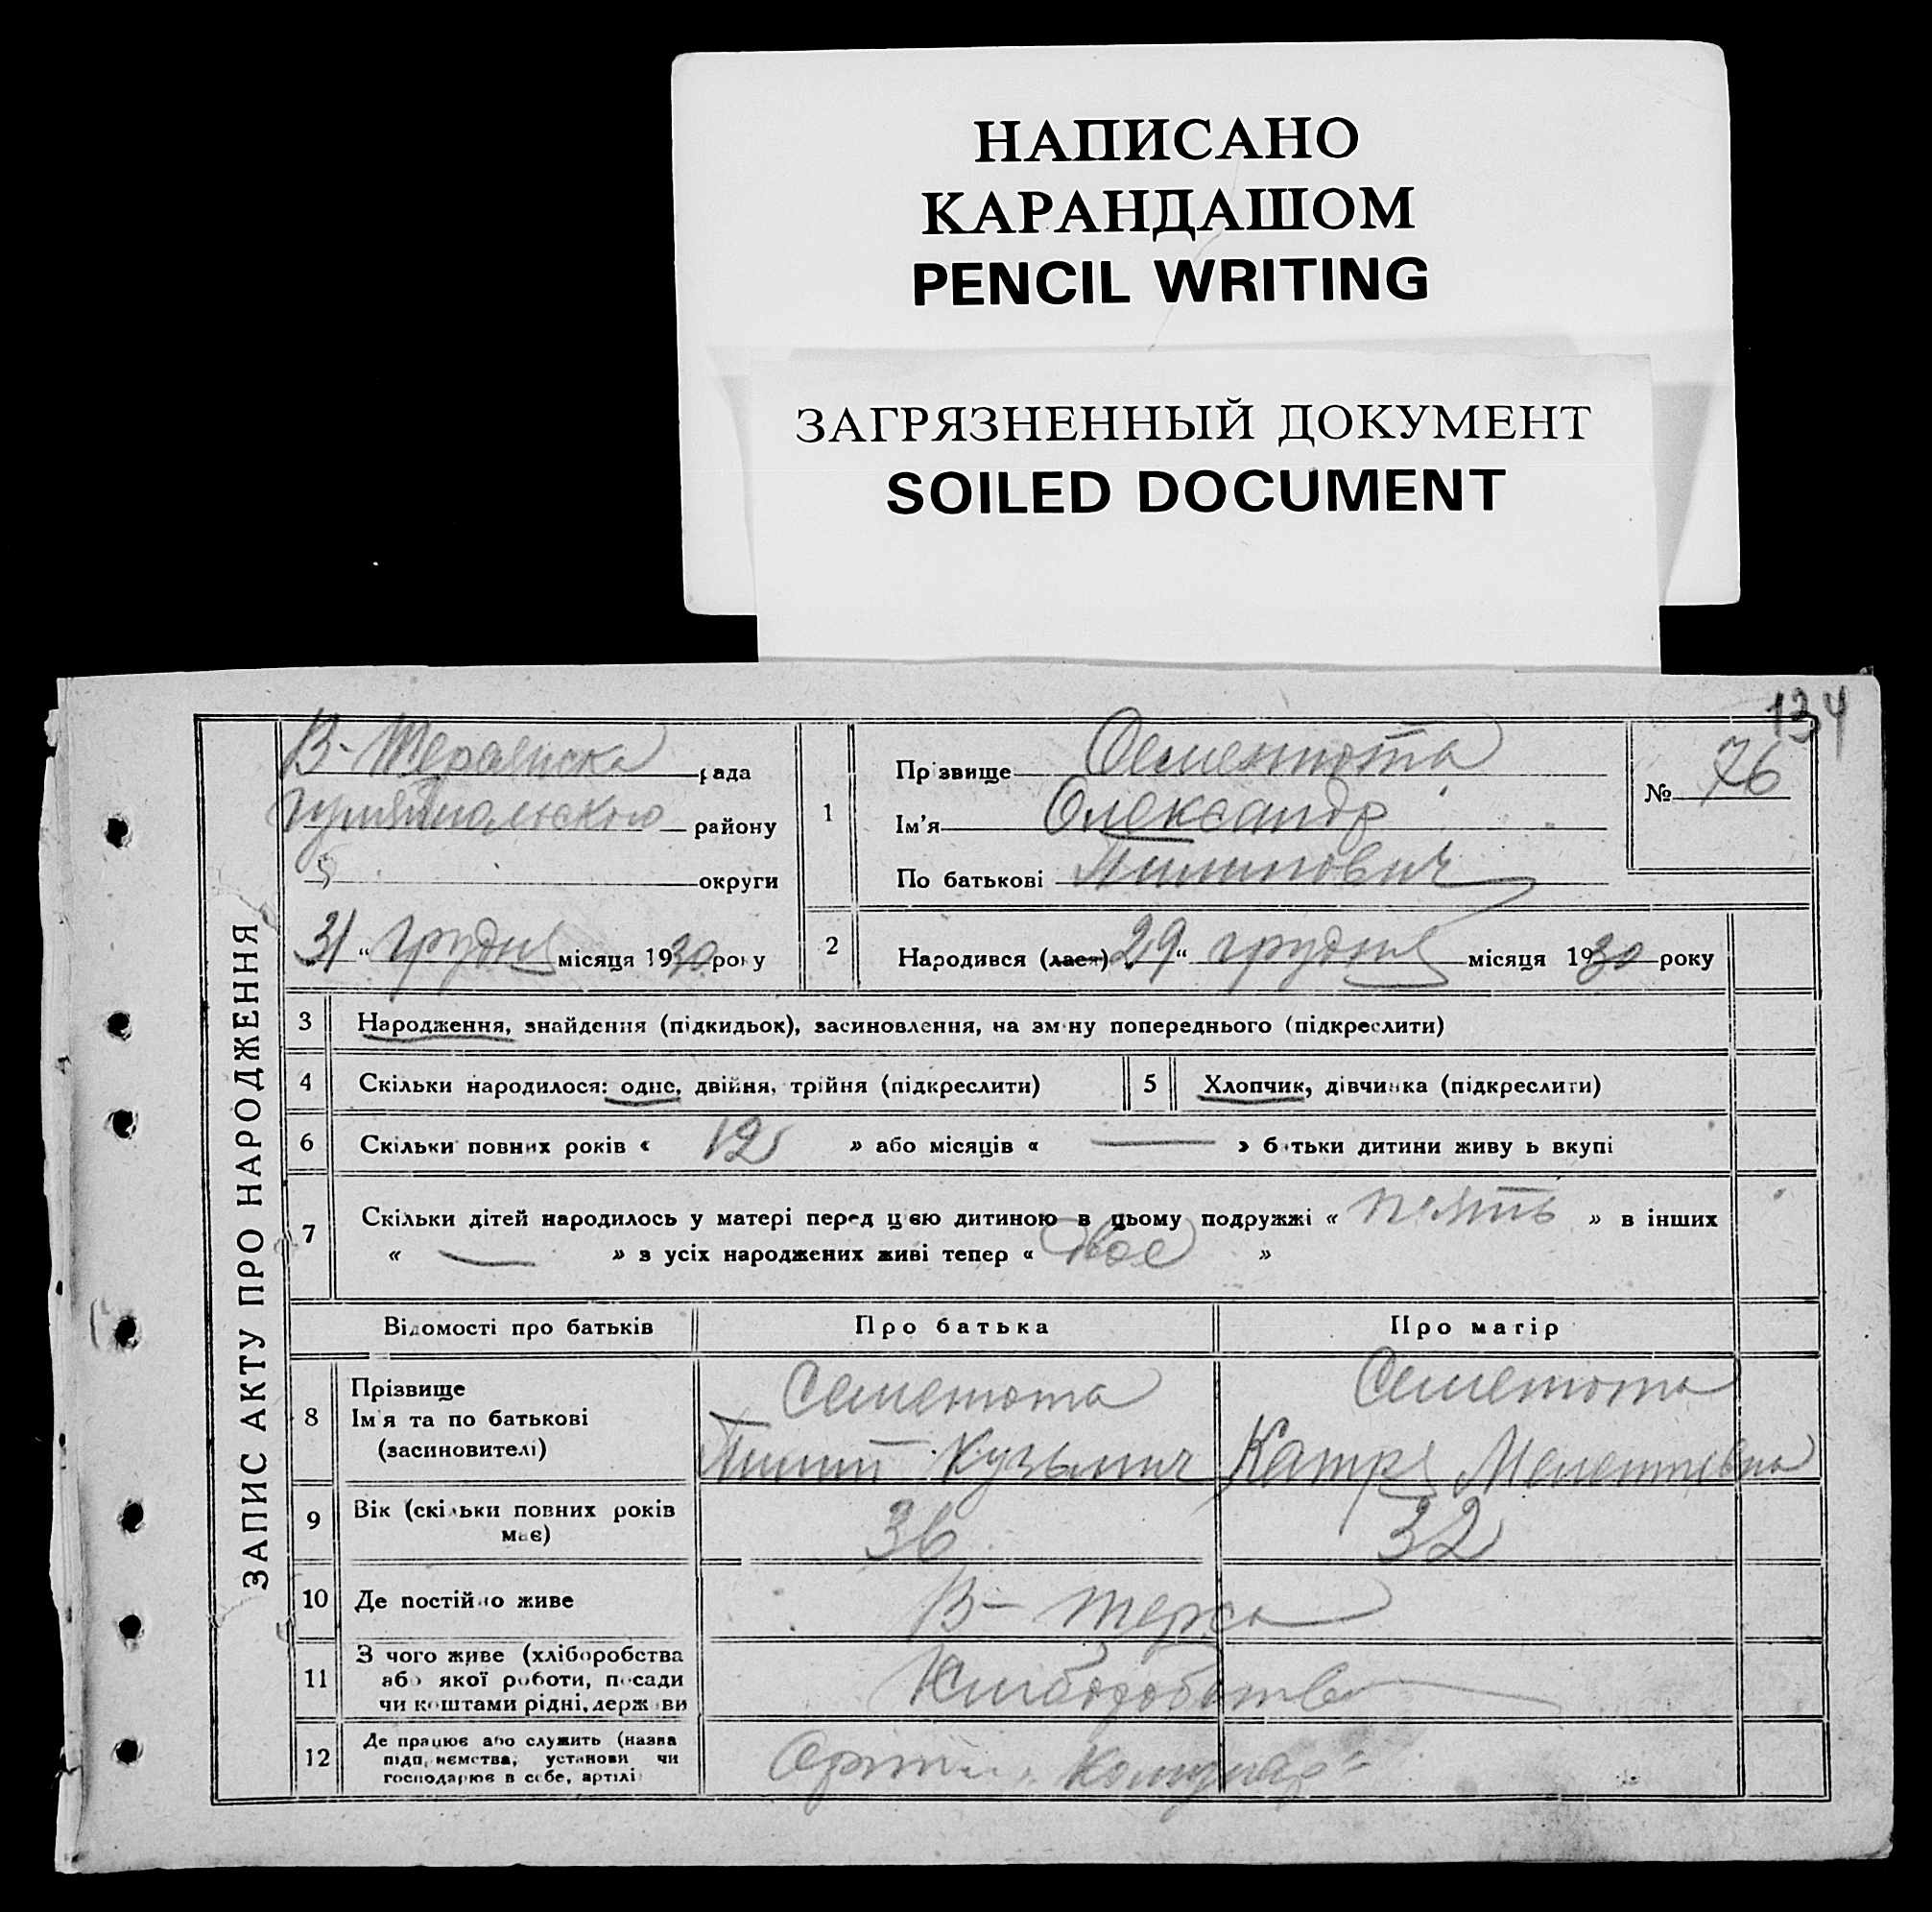 НАПИСАНО
КАРАНДАШОМ
PENCIL WRITING
ЗАГРЯЗНЕННЫЙ ДОКУМЕНТ
SOILED DOCUMENT
134
ЗАПИС АКТУ ПРО НАРОДЖЕННЯ
В- рада
району
округи
31 " грудня місяця 1930 року
1
Прізвище Сементота
Ім'я Олександр
По батькові Пилипович
№ 76
2 Народився (лася) 29 " грудня місяця 1930 року
3 Народження, знайдення (підкидьок), засиновлення, на зміну попереднього (підкреслити)
4 Скільки народилося: одне, двійня, трійня (підкреслити)
5 Хлопчик, дівчинка (підкреслити)
6 Скільки повних років « 12 » або місяців « — » батьки дитини живуть вкупі
7 Скільки дітей народилось у матері перед цією дитиною в цьому подружжі « пять » в інших
« — » з усіх народжених живі тепер « двоє »
Відомості про батьків Про батька Про матір
8 Прізвище
Ім'я та по батькові
(засиновителі)
Сементота
Пилип Кузьмич
Сементота
Катря
9 Вік (скільки повних років
має)
36 32
10 Де постійно живе В- Терса
11 З чого живе (хліборобства
або якої роботи, посади
чи коштами рідні, держави
Хліборобство
12 Де працює або служить (назва
підприємства, установи чи
господарює в себе, артілі)